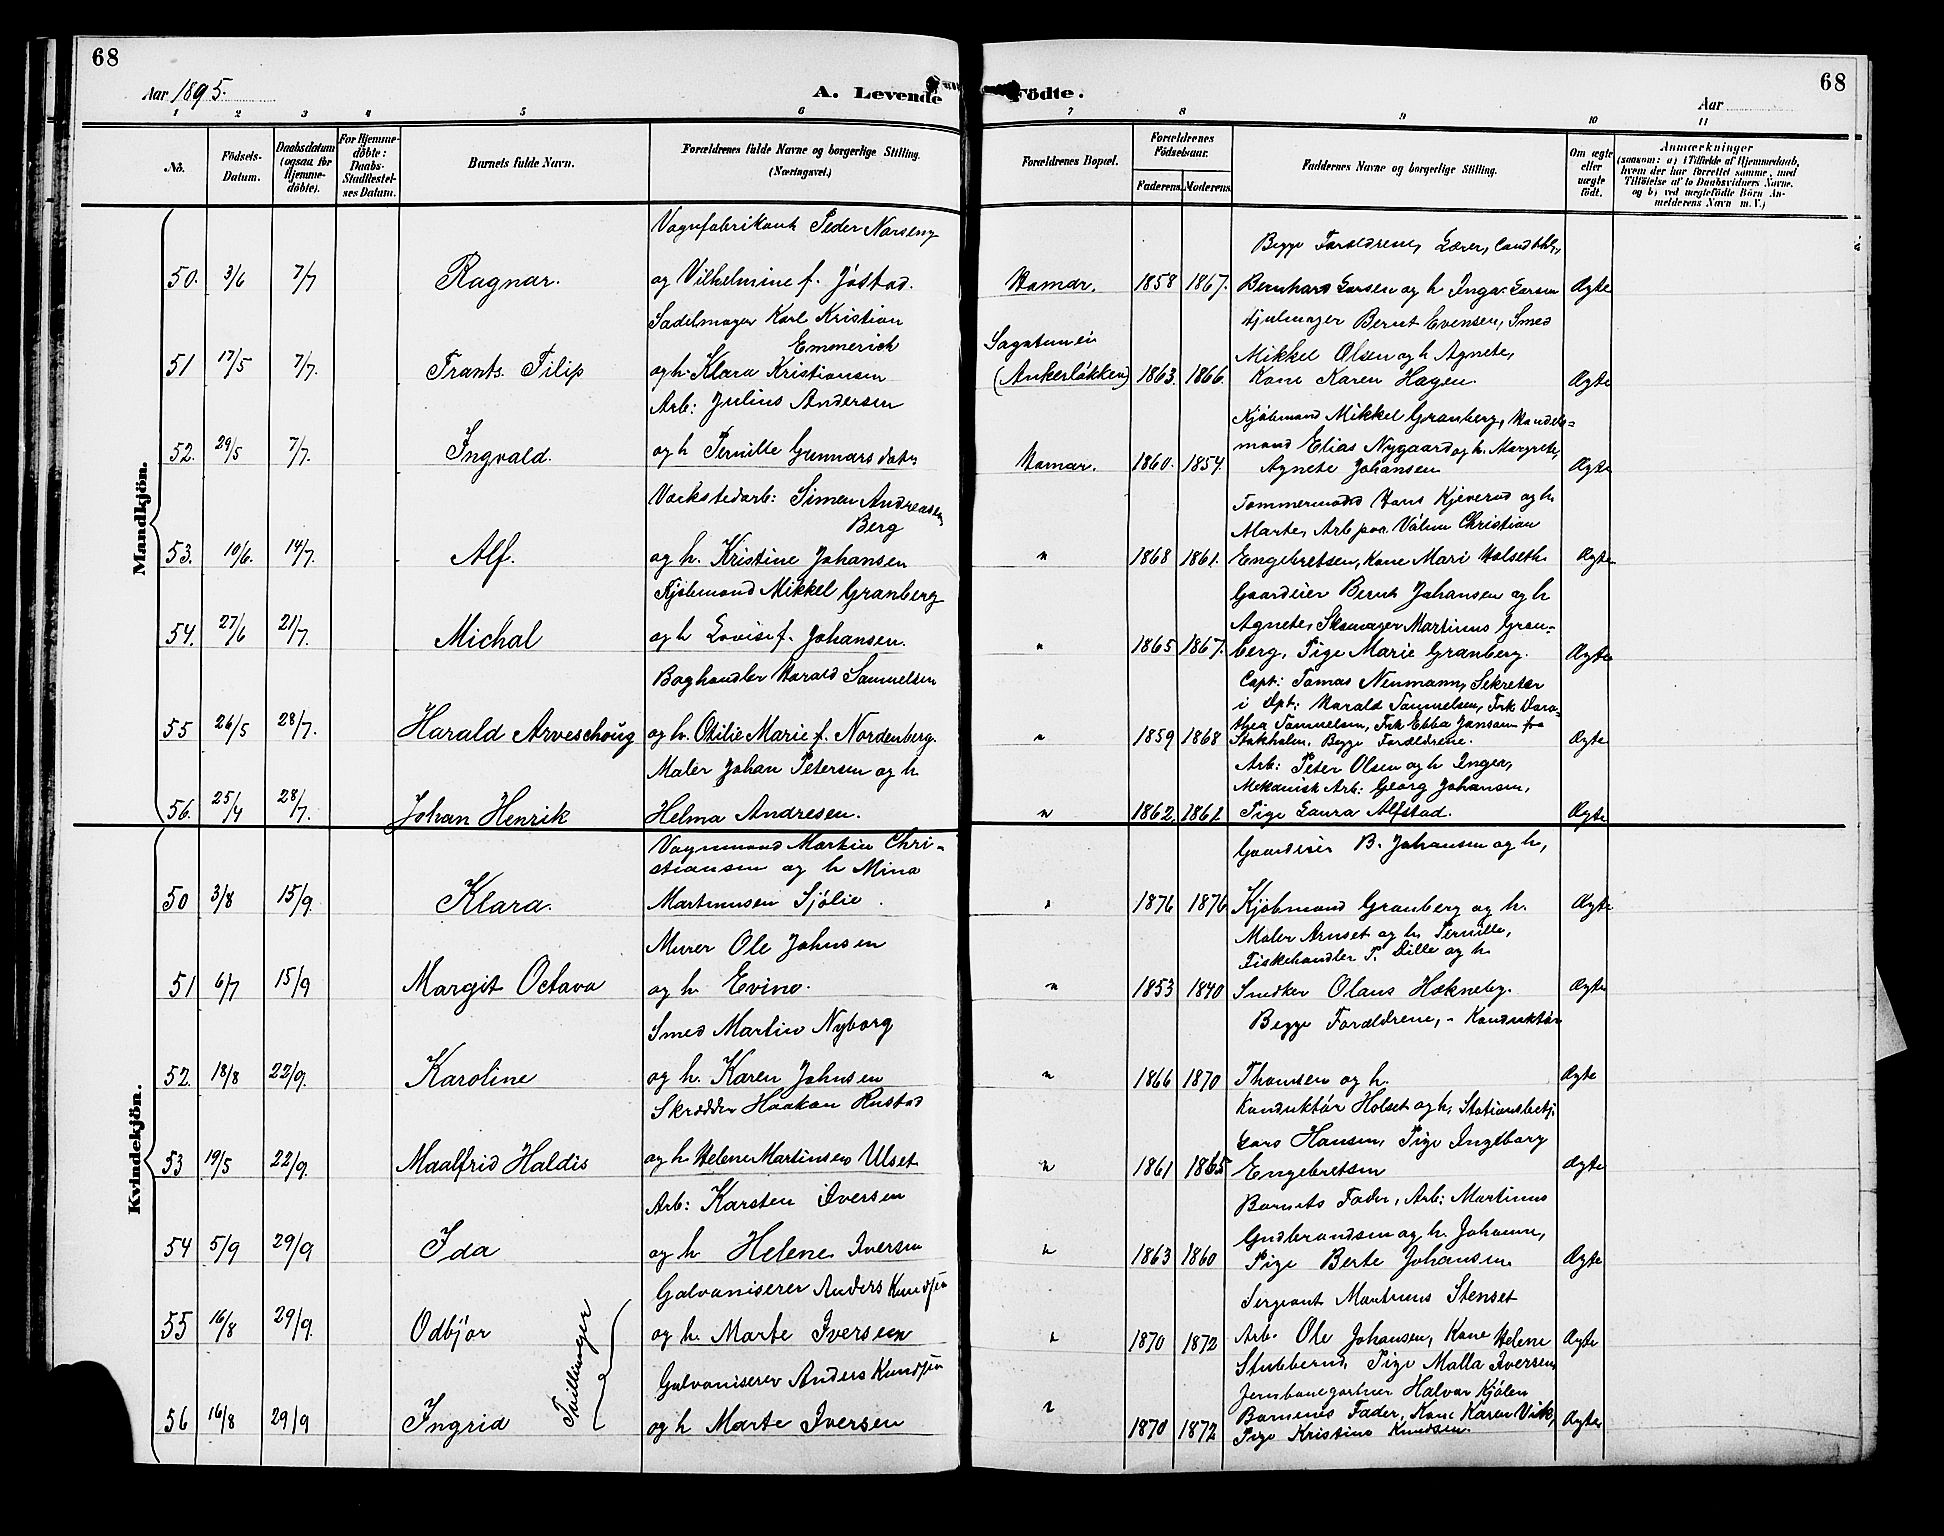 68
68
Aar 1895.
A. Levende Födte.
Aar
1 2 3 4 5 6 7 8 9 10 11
No. Födsels-Datum. Daabsdatum (ogsaa for Hjemmedöbte). For Hjemmedöbte: Daabs-Stadfæstelses Datum. Barnets fulde Navn. Forældrenes fulde Navne og borgerlige Stilling. (Næringsvei.) Forældrenes Bopæl. Forældrenes Födselsaar. Faderens. Moderens. Faddernes Navne og borgerlige Stilling. Om ægte eller uægte födt. Anmærkninger (saasom: a) i Tilfælde af Hjemmedaab, hvem der har forrettet samme, med Tilföielse af to Daabsvidners Navne, og b) ved uægtefödte Börn Anmelderens Navn m. V.)
Mandkjön.
Vognfabrikant Peder Narseng
Begge Forældrene, Lærer, Cand. thl.,
50. 3/6 7/7 Ragnar. og Vilhelmine f. Jöstad. Hamar. 1858 1867. Bernhard Larsen og h Inga Larsen Ægte
Sadelmager Karl Kristian Emmerich
Hjulmager Bernt Evensen, Smed
Sagatunei
Mikkel Olsen og h Agnete,
51 17/5 7/7. Frants Filip og h. Klara Kristiansen (Ankerlökken) 1863. 1866. Kone Karen Hagen. Ægte
Arb: Julius Andersen
Kjöbmand Mikkel Granberg, Handels-
mand Elias Nygaard og h. Margrete,
52. 29/5 7/7. Ingvald. og h Pernille Gunnarsdater Hamar. 1860. 1854. Agnete Johansen Ægte
Værkstedarb: Simen Andreasen Berg
Tömmermand Hans Kjeverud og h.
Marte, Arb paa Vålun Christian
53. 10/6. 14/7. Alf. og h. Kristine Johansen " 1868 1861. Engebretsen, Kone Mari Holseth Ægte
Kjöbmand Mikkel Granberg
Gaardeier Bernt Johansen og h
Agnete, Skomager Martinus Gran-
54. 27/6 21/7. Michal og h Lovise f. Johansen. " 1865 1867. berg, Pige Marie Granberg. Ægte
Boghandler Harald Samuelsen
Capt: Tomas Neumann, Sekretær
i Dpt: Harald Samuelsen, Frk Doro-
thea Samuelsen, Frk Ebba Janson fra
55 26/5 28/7. Harald Arveschoug og h. Otilie Marie f. Nordenberg. " 1859 1868 Stokholm. Begge Forældrene. Ægte
Maler Johan Petersen og h
Arb: Peter Olsen og h Inger,
Mekanisk Arb: Georg Johansen,
56. 25/4 28/7. Johan Henrik Helma Andresen. " 1862. 1861. Pige Laura Alfstad. Ægte
Kvindekjön.
Vognmand Martin Chri-
stiansen og h Mina
Gaardeier B. Johansen og h,
50 3/8 15/9. Klara. Martinusen Sjölie. " 1876 1876 Kjöbmand Granberg og h. Ægte
Murer Ole Johnsen
Maler Arnset og h. Pernille,
Fiskehandler P. Lille og h.
51 6/7 15/9 Margit Octava og h. Evine. " 1853 1840 Snedker Olaus Hokneby. Ægte
Smed Martin Nyborg
Begge Forældrene, - Konduktör
52. 18/8 22/9. Karoline og h. Karen Johnsen " 1866 1870 Thomsen og h. Ægte
Skrædder Haakon Rustad
Konduktör Holset og h, Stationsbetj.
Lars Hansen, Pige Ingeborg
53 19/5 22/9. Maalfrid Haldis og h Helene Martinsen Ulset " 1861 1865 Engebretsen Ægte
Arb: Karsten Iversen
Barnets Fader, Arb: Martinus
Gudbrandsen og h. Johanne,
54 5/9 29/9 Ida og h Helene Iversen " 1863 1860 Pige Berte Johansen. Ægte
Galvaniserer Anders Knudsen
Sergeant Martinus Stenset
55 16/8 29/9. Odbjör og h. Marte Iversen " 1870 1872 Arb. Ole Johansen, Kone Helene Ægte
Stubberud, Pige Malla Iversen
Tvillinger
Galvaniserer Anders Knudsen
Jernbanegartner Halvor Kjölen
56 16/8 29/9 Ingrid og h Marte Iversen " 1870 1872 Barnenes Fader, Kone Karen Vik, Ægte
Pige Kristine Knudsen.